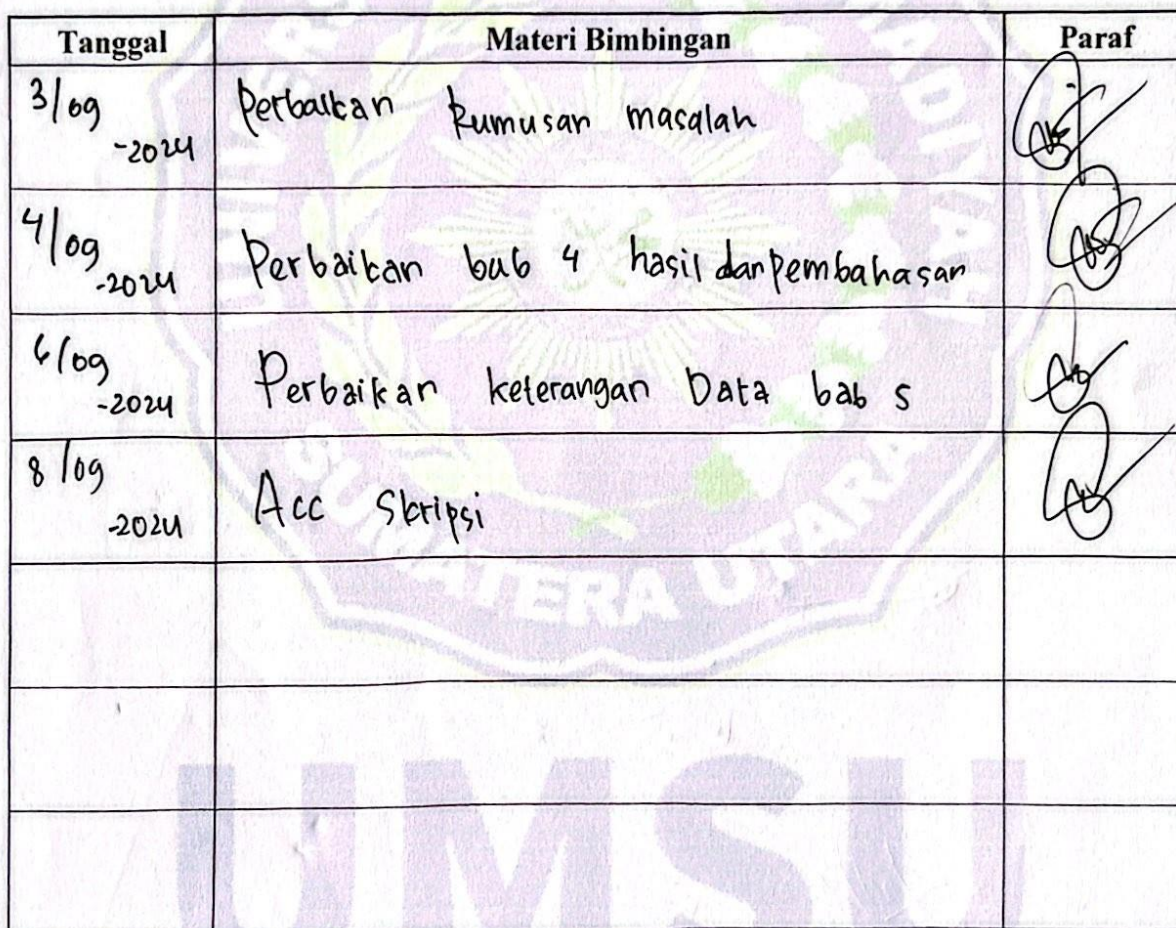 Tanggal Materi Bimbingan Paraf
3/09 -2024 Perbaikan Rumusan masalah
4/09 -2024 Perbaikan bab 4 hasil dan pembahasan
6/09 -2024 Perbaikan keterangan Data bab 5
8/09 -2024 Acc Skripsi
SUMATERA UTARA
UMSU